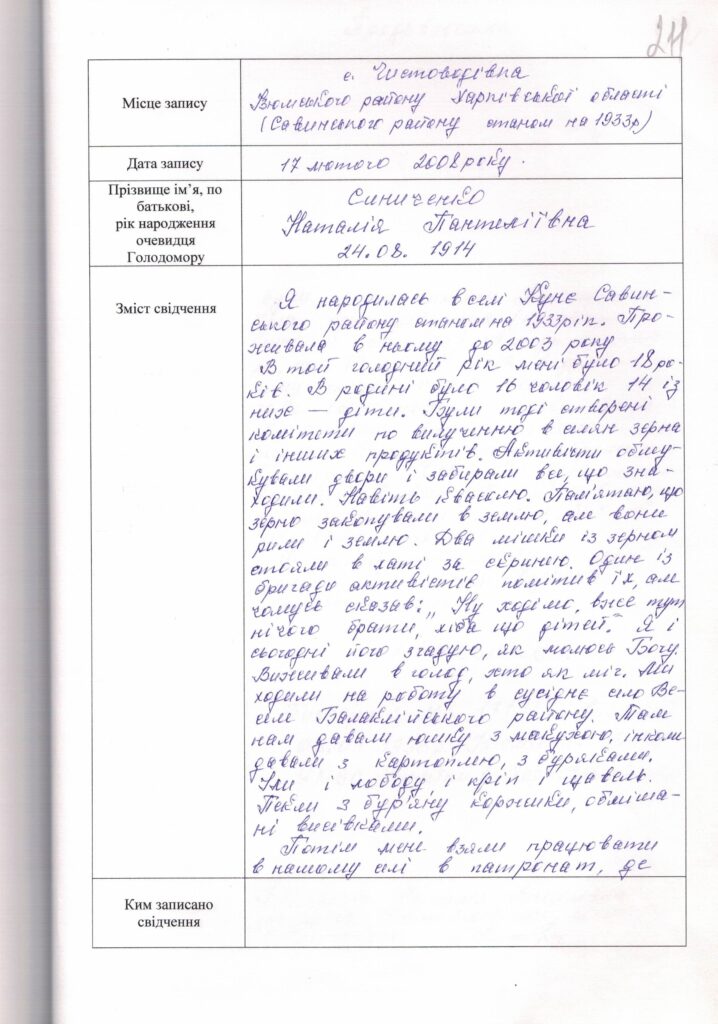 211
Місце запису
с. Чистоводівка
Ізюмського району Харківської області
(Савинського району станом на 1933р)
Дата запису
17 лютого 2008 року.
Прізвище ім'я, по
батькові,
рік народження
очевидця
Голодомору
Синиченко
Наталія Пантеліївна
24.08. 1914
Зміст свідчення
Я народилась в селі Куньє Савин-
ського району станом на 1933 рік. Про-
живала в ньому до 2003 року
В той голодний рік мені було 18 ро-
ків. В родині було 16 чоловік 14 із
них — діти. Були тоді створені
комітети по вилученню в селян зерна
і інших продуктів. Активісти обшу-
кували двори і забирали все, що зна-
ходили. Навіть квасолю. Пам'ятаю, що
зерно закопували в землю, але вони
рили і землю. Два мішки із зерном
стояли в хаті за скринею. Один із
бригади активістів помітив їх, але
чомусь сказав: „Ну ходімо, вже тут
нічого брати, хіба що дітей." Я і
сьогодні його згадую, як молюсь Богу.
Виживали в голод, хто як міг. Ми
ходили на роботу в сусіднє село Ве-
селе Балаклійського району. Там
нам давали юшку з макухою, інколи
давали з картоплею, з буряками.
Їли і лободу, і кріп і щавель.
Пекли з бур'яну коржики, обліпле-
ні висівками.
Потім мене взяли працювати
в нашому селі в патронат, де
Ким записано
свідчення